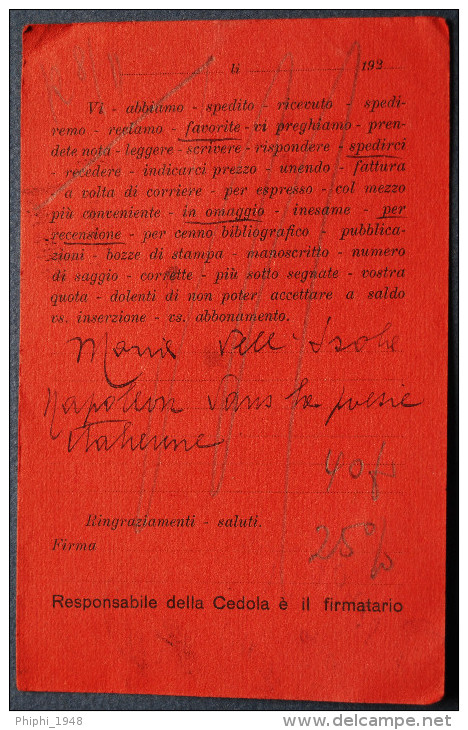 li 192
Vi - abbiamo - spedito - ricevuto - spedi-
remo - reclamo - favorite - vi preghiamo - pren-
dete nota - leggere - scrivere - rispondere - spedirci
- recedere - indicarci prezzo - unendo - fattura
a volta di corriere - per espresso - col mezzo
più conveniente - in omaggio - inesame - per
recensione - per cenno bibliografico - pubblica-
zioni - bozze di stampa - manoscritto - numero
di saggio - corrette - più sotto segnate - vostra
quota - dolenti di non poter accettare a saldo
vs. inserzione - vs. abbonamento.
Maria Dell'Isola
Napoléon dans la poésie
italienne
40 fr
Ringraziamenti - saluti.
25%
Firma
Responsabile della Cedola è il firmatario
Phiphi_1948
delcampe.net